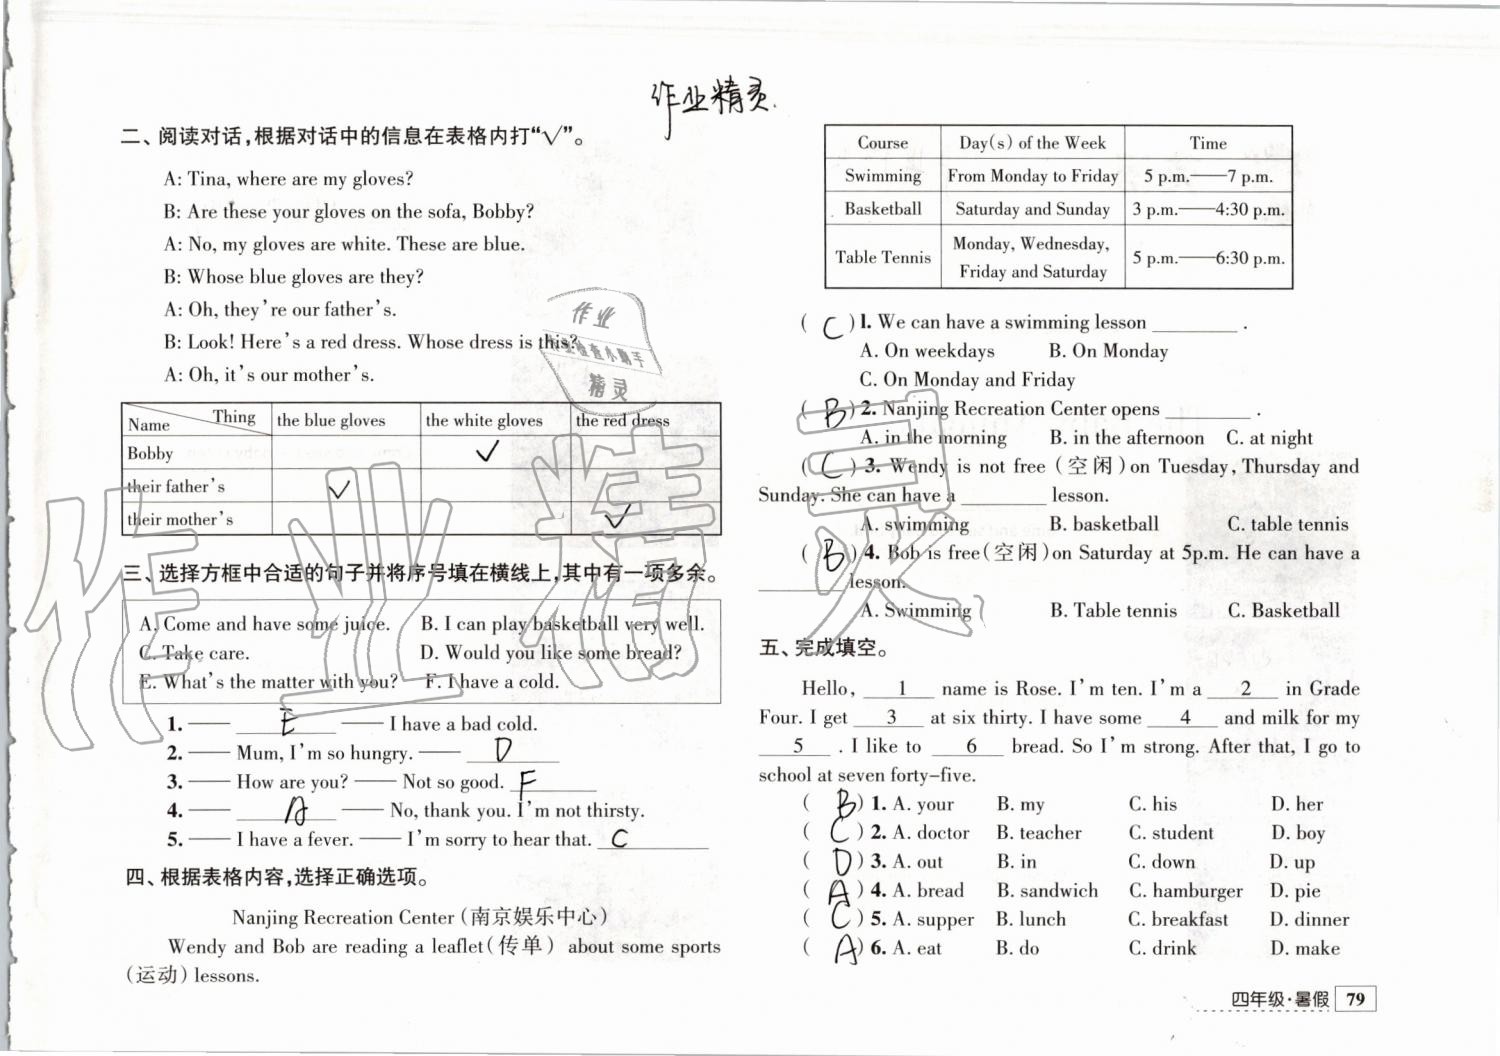 作业精灵
二、阅读对话,根据对话中的信息在表格内打“√”。
A: Tina, where are my gloves?
B: Are these your gloves on the sofa, Bobby?
A: No, my gloves are white. These are blue.
B: Whose blue gloves are they?
A: Oh, they're our father's.
B: Look! Here's a red dress. Whose dress is this?
A: Oh, it's our mother's.
Name Thing the blue gloves the white gloves the red dress
Bobby √
their father's √
their mother's √
三、选择方框中合适的句子并将序号填在横线上,其中有一项多余。
A. Come and have some juice. B. I can play basketball very well.
C. Take care. D. Would you like some bread?
E. What's the matter with you? F. I have a cold.
1. —— E —— I have a bad cold.
2. —— Mum, I'm so hungry. —— D
3. —— How are you? —— Not so good. F
4. —— A —— No, thank you. I'm not thirsty.
5. —— I have a fever. —— I'm sorry to hear that. C
四、根据表格内容,选择正确选项。
Nanjing Recreation Center(南京娱乐中心)
Wendy and Bob are reading a leaflet(传单) about some sports
(运动) lessons.
Course Day(s) of the Week Time
Swimming From Monday to Friday 5 p.m.——7 p.m.
Basketball Saturday and Sunday 3 p.m.——4:30 p.m.
Table Tennis Monday, Wednesday, Friday and Saturday 5 p.m.——6:30 p.m.
( C )1. We can have a swimming lesson ________ .
A. On weekdays B. On Monday
C. On Monday and Friday
( B )2. Nanjing Recreation Center opens ________ .
A. in the morning B. in the afternoon C. at night
( C ) 3. Wendy is not free (空闲) on Tuesday, Thursday and
Sunday. She can have a ________ lesson.
A. swimming B. basketball C. table tennis
( B ) 4. Bob is free(空闲)on Saturday at 5p.m. He can have a
________ lesson.
A. Swimming B. Table tennis C. Basketball
五、完成填空。
Hello, 1 name is Rose. I'm ten. I'm a 2 in Grade
Four. I get 3 at six thirty. I have some 4 and milk for my
5 . I like to 6 bread. So I'm strong. After that, I go to
school at seven forty-five.
( B ) 1. A. your B. my C. his D. her
( C ) 2. A. doctor B. teacher C. student D. boy
( D ) 3. A. out B. in C. down D. up
( A ) 4. A. bread B. sandwich C. hamburger D. pie
( C ) 5. A. supper B. lunch C. breakfast D. dinner
( A ) 6. A. eat B. do C. drink D. make
四年级·暑假 79
作业
检查小助手
精灵
作业精灵